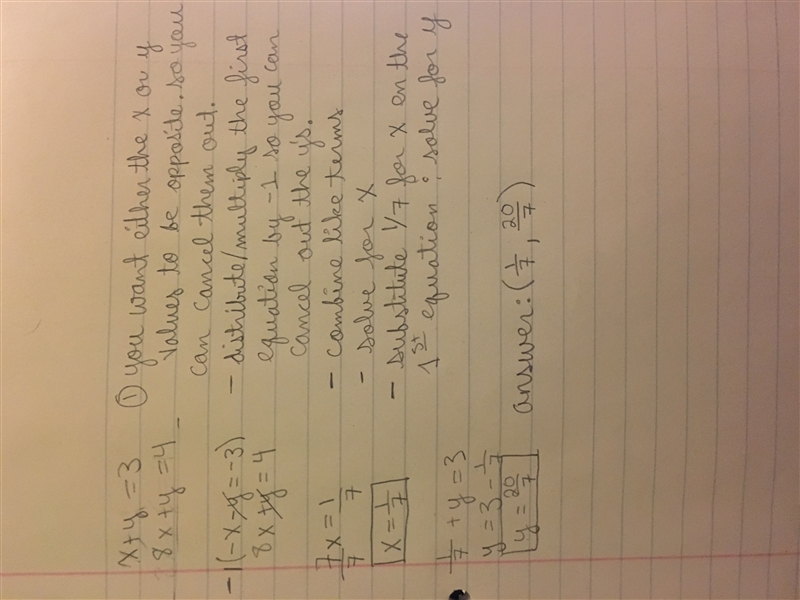 x+y=3
8x+y=4
-1(-x-y=-3)
8x+y=4
7x=1
7 7
x=1/7
1/7+y=3
y=3-1/7
y=20/7
① you want either the x or y
values to be opposite. so you
can cancel them out.
- distribute/multiply the first
equation by -1 so you can
cancel out the y's.
- combine like terms
- solve for x
- substitute 1/7 for x en the
1st equation ; solve for y
answer: (1/7, 20/7)